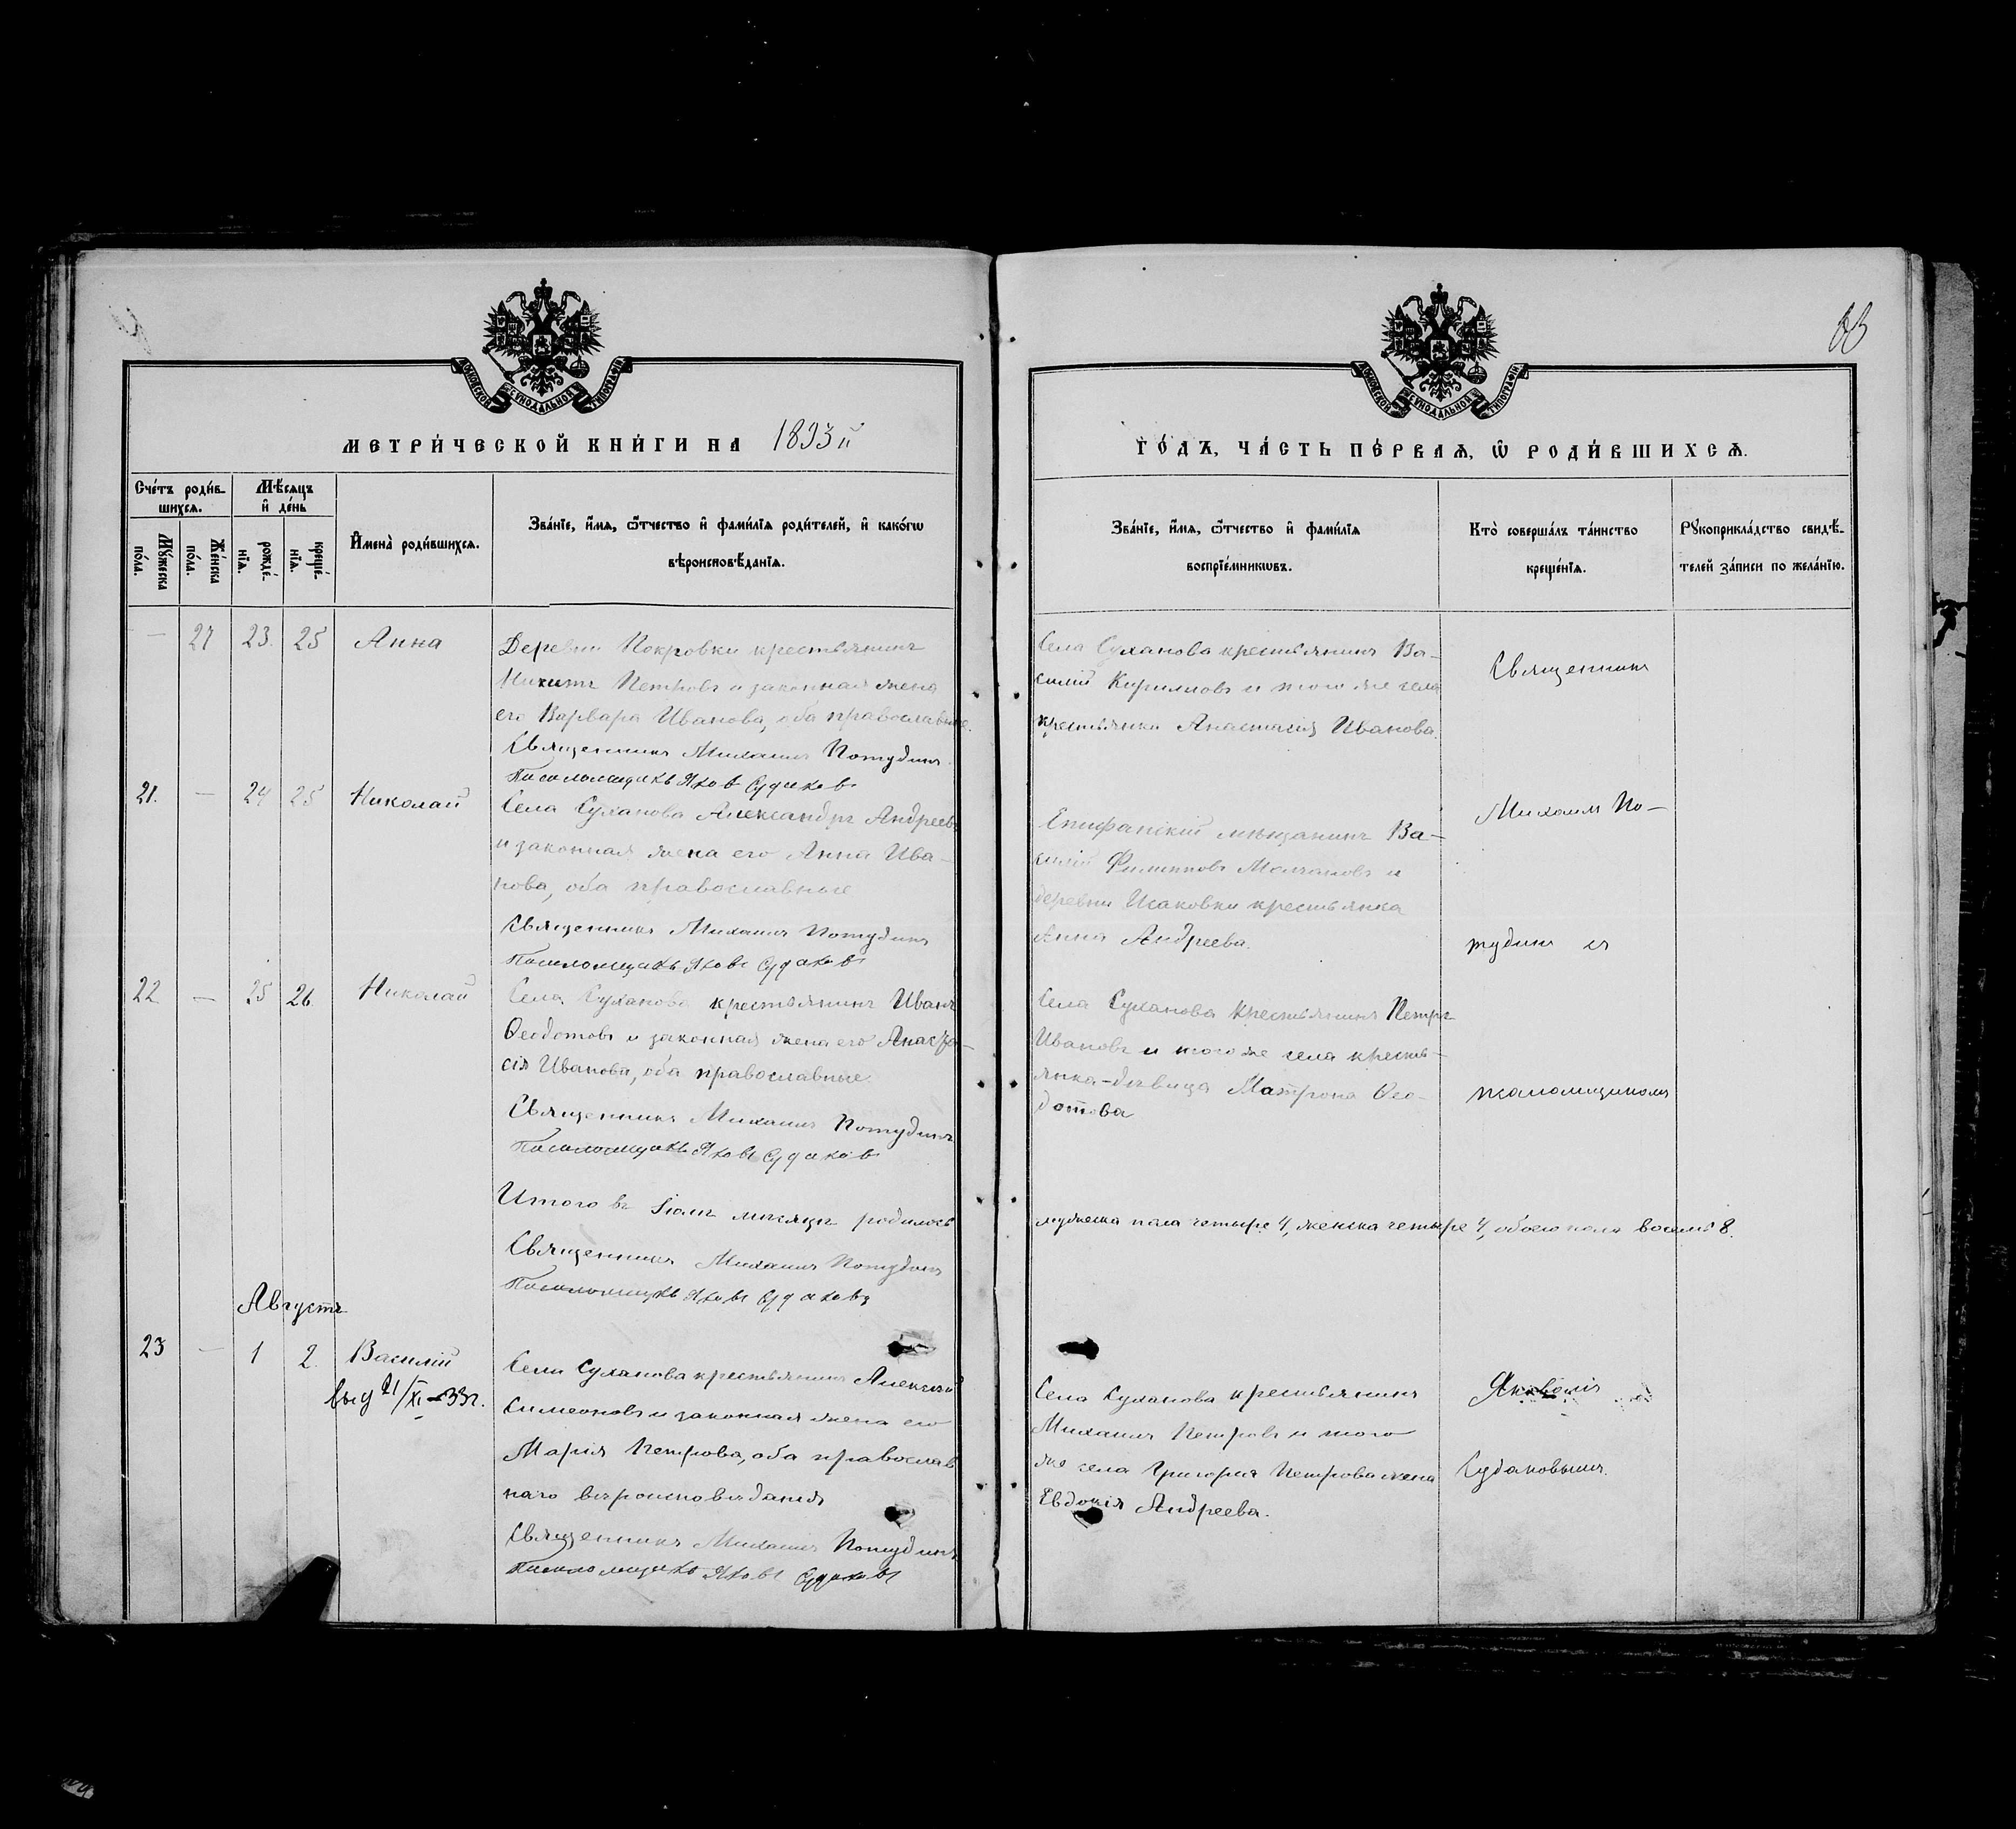 83
МОСКОВСКОЙ СѴНОДАЛЬНОЙ ТИПОГРАФІИ
МЕТРИ́ЧЕСКОЙ КНИ́ГИ НА 1893й
Сче́тъ роди́в-
шихся.
Мѣ́сяцъ
и҆ де́нь
Мꙋ́жеска
по́ла.
Же́нска
по́ла.
рожде́-
нїя.
креще́-
нїя.
И҆мена̀ роди́вшихся.
Зва́нїе, и҆́мя, ѻ҆́тчество и҆ фами́лїя роди́телей, и҆ како́гѡ
вѣроисповѣ́данїя.
— 27 23. 25 Анна
Деревни Покровки крестьянинъ
Никита Петровъ и законная жена
его Варвара Иванова, оба православные.
Священникъ Михаилъ Потудинъ.
Псаломщикъ Яковъ Судаковъ
21. — 24 25 Николай
Села Суханова Александръ Андреевъ
и законная жена его Анна Ива-
нова, оба православные
Священникъ Михаилъ Потудинъ
Псаломщикъ Яковъ Судаковъ
22 — 25 26 Николай
Села Суханова крестьянинъ Иванъ
Ѳеодотовъ и законная жена его Анаста-
сія Иванова, оба православные.
Священникъ Михаилъ Потудинъ
Псаломщикъ Яковъ Судаковъ
Итого въ Іюлѣ мѣсяцѣ родилось
Священникъ Михаилъ Потудинъ
Псаломщикъ Яковъ Судаковъ
Августъ
23 — 1 2. Василій
выд 21/XI-33г.
Села Суханова крестьянинъ Алексѣй
Симеоновъ и законная жена его
Марія Петрова, оба православ
наго вѣроисповѣданія
Священникъ Михаилъ Потудинъ
Псаломщикъ Яковъ Судаковъ
МОСКОВСКОЙ СѴНОДАЛЬНОЙ ТИПОГРАФІИ
ГО́ДЪ, ЧА́СТЬ ПЕ́РВАЯ, Ѡ҆ РОДИ́ВШИХСЯ.
Зва́нїе, и҆́мя, ѻ҆́тчество и҆ фами́лїя
воспрїе́мникѡвъ.
Кто̀ соверша́лъ та́инство
креще́нїя.
Рꙋкоприкла́дство свидѣ́-
телей за́писи по жела́нїю.
Села Суханова крестьянинъ Ва-
силій Кириловъ и того же села
крестьянка Анастасія Иванова.
Епифанскій мѣщанинъ Ва-
силій Филипповъ Молчановъ и
деревни Исаковки крестьянка
Анна Андреева.
Села Суханова крестьянинъ Петръ
Ивановъ и того же села кресть-
янка-дѣвица Матрона Ѳео-
дотова
мужеска пола четыре 4, женска четыре 4, обоего пола восемь 8.
Села Суханова крестьянинъ
Михаилъ Петровъ и того
же села Григорія Петрова жена
Евдокія Андреева.
Священникъ
Михаилъ По-
тудинъ съ
псаломщикомъ
Яковомъ
Судаковымъ.